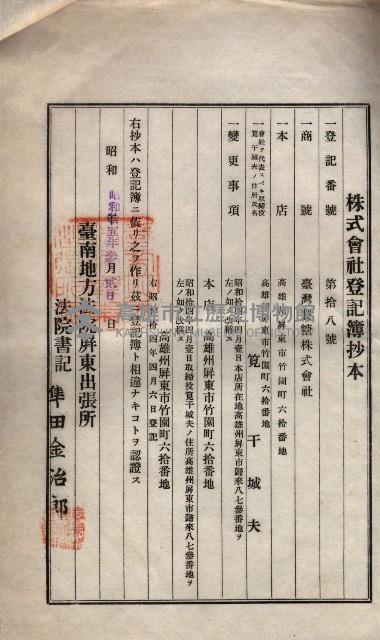 株式會社登記簿抄本
一登記番號 第拾八號
一商號 臺灣 株式會社
一本店 高雄州屏東市竹園町六拾番地
一會社ヲ代表スベキ取締役
筧干城夫ノ住所氏名
高雄州屏東市竹園町六拾番地
筧干城夫
一變更事項
昭和拾四年四月壹日本店所在地高雄州屏東市歸來八七參番地ヲ
左ノ如ク移轉ス
本店 高雄州屏東市竹園町六拾番地
昭和拾四年四月壹日取締役筧干城夫ノ住所高雄州屏東市歸來八七參番地ヲ
左ノ如ク
高雄州屏東市竹園町六拾番地
右昭和拾四年四月六日登記
右抄本ハ登記簿ニ依リ之ヲ作リ茲ニ登記簿ト相違ナキコトヲ認證ス
昭和 年 月 日
昭和拾五年參月貳日
臺南地方法院屏東出張所
法院書記 隼田金治郎
高雄市立歷史博物館
KAOHSIUNG MUSEUM OF HISTORY